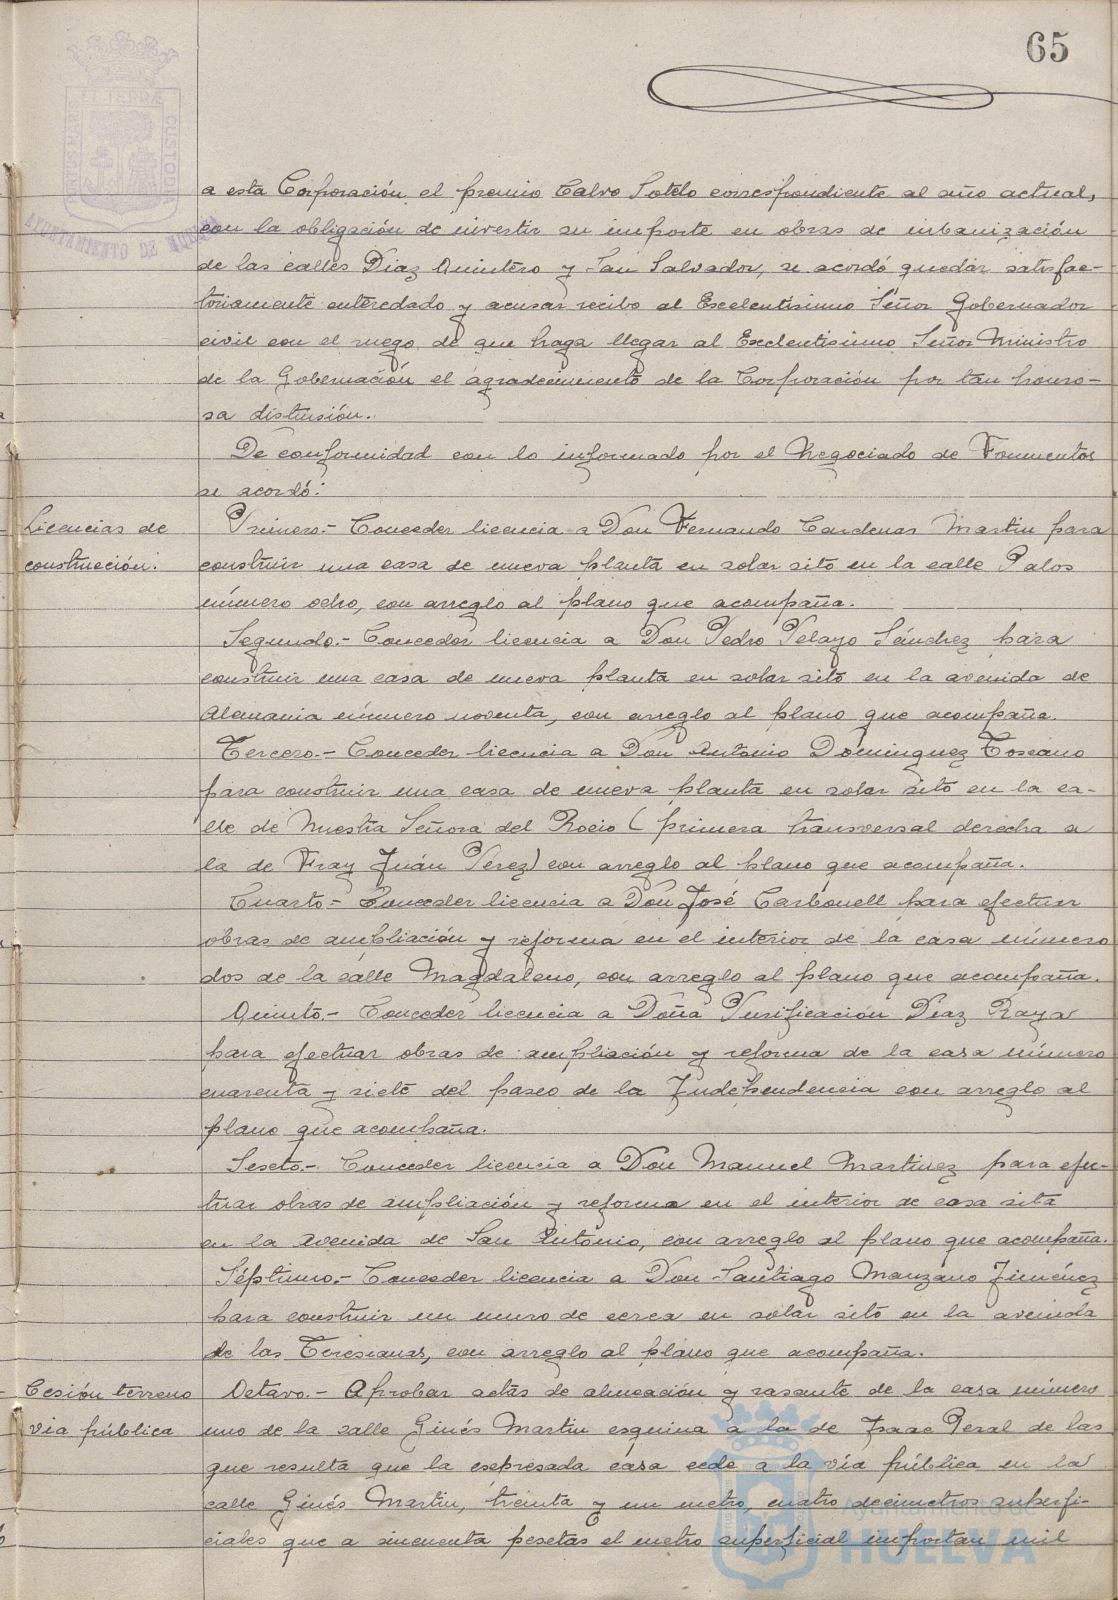 65
PORTUS MARIS ET TERRAE CUSTODIA
AYUNTAMIENTO DE HUELVA
a esta Corporación el premio Calvo Sotelo correspondiente al año actual,
con la obligación de invertir su importe en obras de urbanización
de las calles Diaz Quintero y San Salvador, se acordó quedar satisfac-
toriamente enteredado y acusar recibo al Excelentisimo Señor Gobernador
civil con el ruego de que haga llegar al Exclentisimo Señor Ministro
de la Gobernación el agradecimiento de la Corporación por tan honro-
sa distinsión.
De conformidad con lo informado por el Negociado de Fomentos
se acordó:
Licencias de
construcción:
Primero.- Conceder licencia a Don Fernando Cardenas Martin para
construir una casa de nueva planta en solar sito en la calle Palos
número ocho, con arreglo al plano que acompaña.
Segundo.- Conceder licencia a Don Pedro Pelayo Sánchez para
construir una casa de nueva planta en solar sito en la avenida de
Alemania número noventa, con arreglo al plano que acompaña.
Tercero.- Conceder licencia a Don Antonio Dominguez Toscano
para construir una casa de nueva planta en solar sito en la ca-
lle de Nuestra Señora del Rocio (primera transversal derecha a
la de Fray Juán Pérez) con arreglo al plano que acompaña.
Cuarto.- Conceder licencia a Don José Carbonell para efectuar
obras de ampliación y reforma en el interior de la casa número
dos de la calle Magdaleno, con arreglo al plano que acompaña.
Quinto.- Conceder licencia a Doña Purificación Díaz Raya
para efectuar obras de ampliación y reforma de la casa número
cuarenta y siete del paseo de la Independencia con arreglo al
plano que acompaña.
Sesto.- Conceder licencia a Don Manuel Martinez para efec-
tuar obras de ampliación y reforma en el interior de casa sita
en la Avenida de San Antonio, con arreglo al plano que acompaña.
Séptimo.- Conceder licencia a Don Santiago Manzano Jiménez
para construir un muro de cerca en solar sito en la avenida
de las Teresianas, con arreglo al plano que acompaña.
Cesión terreno
via pública
Octavo.- Aprobar actas de alineación y rasante de la casa número
uno de la calle Ginés Martin esquina a la de Isaac Peral de las
que resulta que la espresada casa cede a la vía pública en la
calle Ginés Martin, treinta y un metro, cuatro decimetros superfi-
ciales que a cincuenta pesetas el metro superficial importan mil
Ayuntamiento de
HUELVA